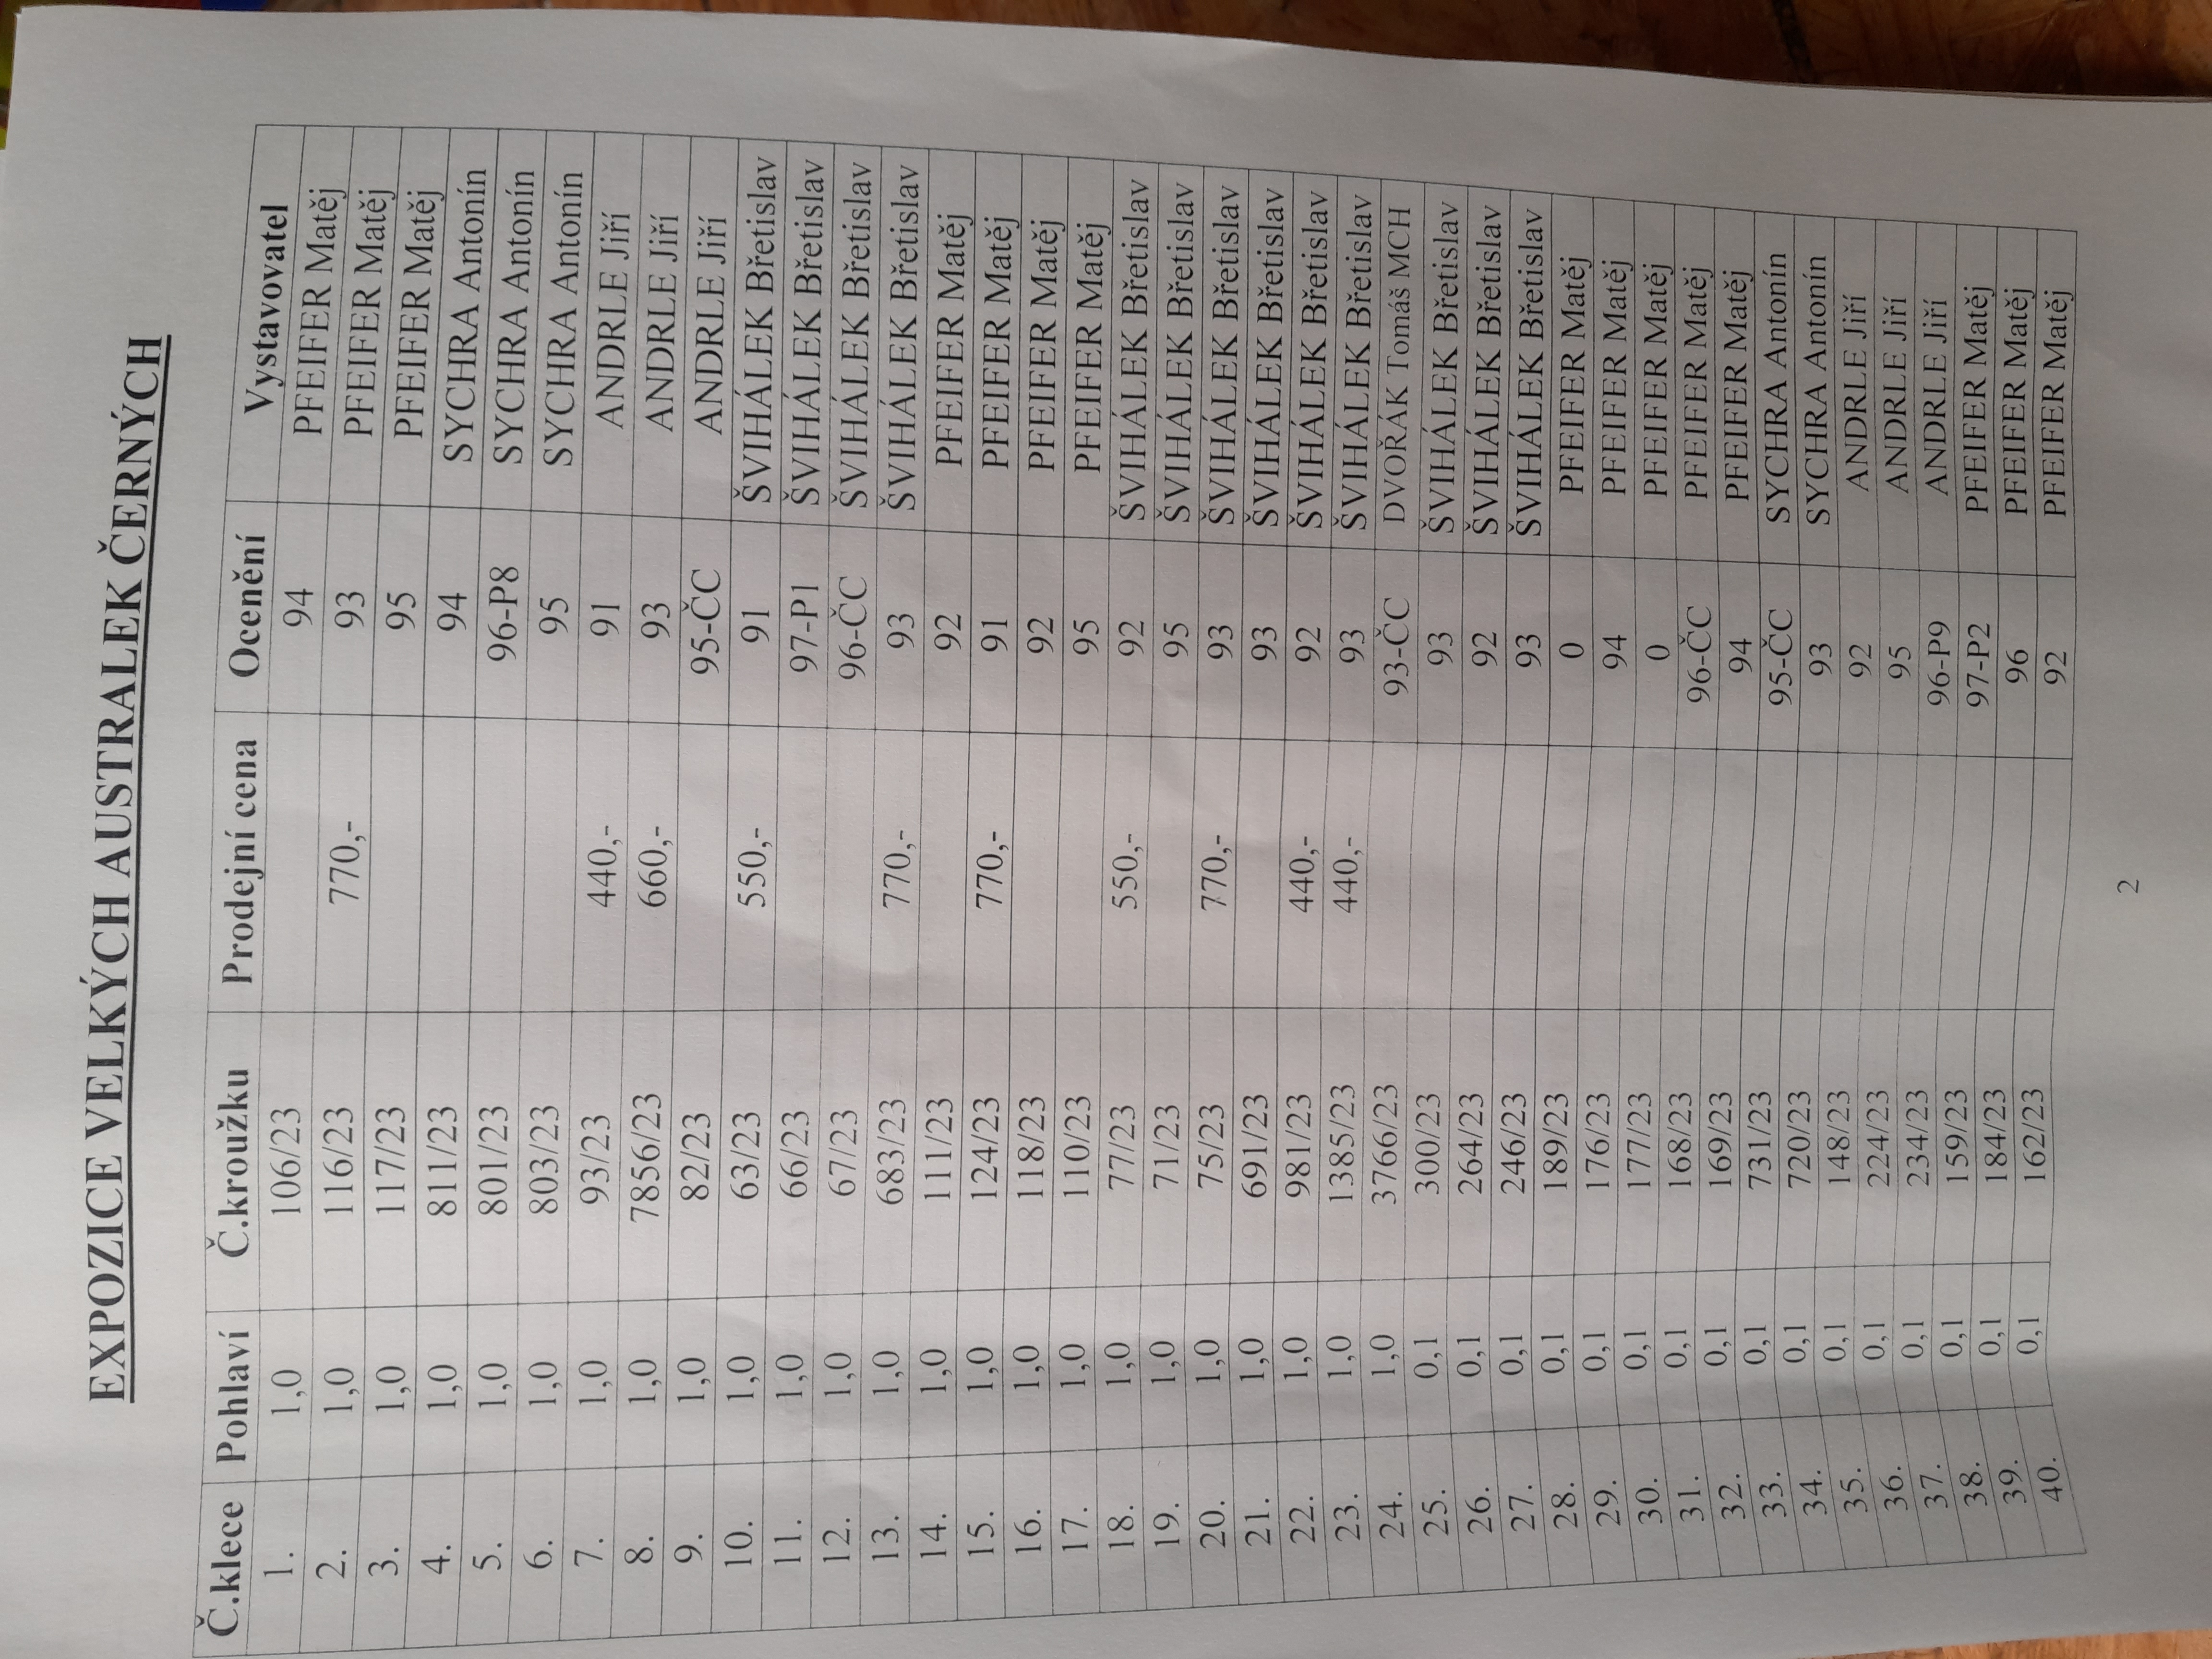 EXPOZICE VELKÝCH AUSTRALEK ČERNÝCH
Č.klece Pohlaví Č.kroužku Prodejní cena Ocenění Vystavovatel
1. 1,0 106/23 94 PFEIFER Matěj
2. 1,0 116/23 770,- 93 PFEIFER Matěj
3. 1,0 117/23 95 PFEIFER Matěj
4. 1,0 811/23 94 SYCHRA Antonín
5. 1,0 801/23 96-P8 SYCHRA Antonín
6. 1,0 803/23 95 SYCHRA Antonín
7. 1,0 93/23 440,- 91 ANDRLE Jiří
8. 1,0 7856/23 660,- 93 ANDRLE Jiří
9. 1,0 82/23 95-ČC ANDRLE Jiří
10. 1,0 63/23 550,- 91 ŠVIHÁLEK Břetislav
11. 1,0 66/23 97-P1 ŠVIHÁLEK Břetislav
12. 1,0 67/23 96-ČC ŠVIHÁLEK Břetislav
13. 1,0 683/23 770,- 93 ŠVIHÁLEK Břetislav
14. 1,0 111/23 92 PFEIFER Matěj
15. 1,0 124/23 770,- 91 PFEIFER Matěj
16. 1,0 118/23 92 PFEIFER Matěj
17. 1,0 110/23 95 PFEIFER Matěj
18. 1,0 77/23 550,- 92 ŠVIHÁLEK Břetislav
19. 1,0 71/23 95 ŠVIHÁLEK Břetislav
20. 1,0 75/23 770,- 93 ŠVIHÁLEK Břetislav
21. 1,0 691/23 93 ŠVIHÁLEK Břetislav
22. 1,0 981/23 440,- 92 ŠVIHÁLEK Břetislav
23. 1,0 1385/23 440,- 93 ŠVIHÁLEK Břetislav
24. 1,0 3766/23 93-ČC DVOŘÁK Tomáš MCH
25. 0,1 300/23 93 ŠVIHÁLEK Břetislav
26. 0,1 264/23 92 ŠVIHÁLEK Břetislav
27. 0,1 246/23 93 ŠVIHÁLEK Břetislav
28. 0,1 189/23 0 PFEIFER Matěj
29. 0,1 176/23 94 PFEIFER Matěj
30. 0,1 177/23 0 PFEIFER Matěj
31. 0,1 168/23 96-ČC PFEIFER Matěj
32. 0,1 169/23 94 PFEIFER Matěj
33. 0,1 731/23 95-ČC SYCHRA Antonín
34. 0,1 720/23 93 SYCHRA Antonín
35. 0,1 148/23 92 ANDRLE Jiří
36. 0,1 224/23 95 ANDRLE Jiří
37. 0,1 234/23 96-P9 ANDRLE Jiří
38. 0,1 159/23 97-P2 PFEIFER Matěj
39. 0,1 184/23 96 PFEIFER Matěj
40. 0,1 162/23 92 PFEIFER Matěj
2